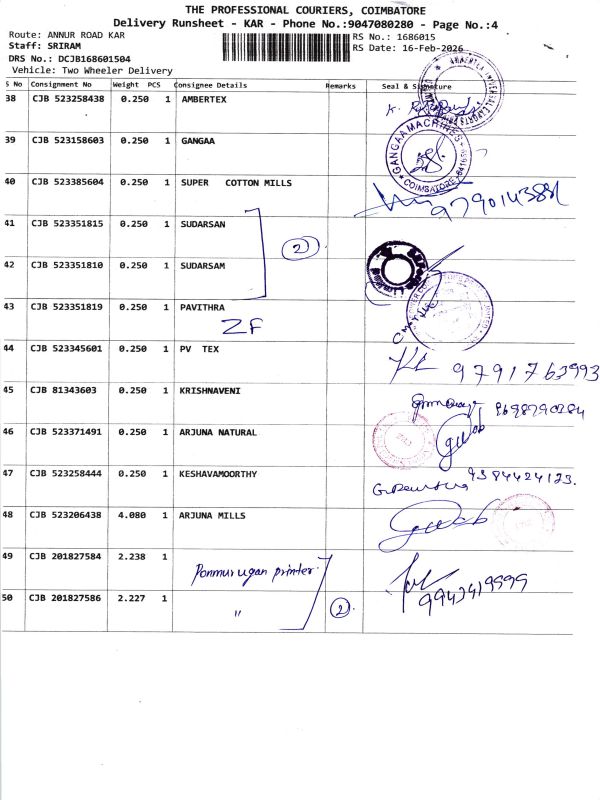 THE PROFESSIONAL COURIERS, COIMBATORE
Delivery Runsheet - KAR - Phone No.:9047080280 - Page No.:4
Route: ANNUR ROAD KAR
RS No.: 1686015
Staff: SRIRAM
RS Date: 16-Feb-2026
DRS No.: DCJB168601504
Vehicle: Two Wheeler Delivery
S No Consignment No Weight PCS Consignee Details Remarks Seal & Signature
38 CJB 523258438 0.250 1 AMBERTEX
39 CJB 523158603 0.250 1 GANGAA
GANGAA MACHINES COIMBATORE
40 CJB 523385604 0.250 1 SUPER COTTON MILLS
41 CJB 523351815 0.250 1 SUDARSAN
2
42 CJB 523351810 0.250 1 SUDARSAM
43 CJB 523351819 0.250 1 PAVITHRA
ZF
44 CJB 523345601 0.250 1 PV TEX
9791763993
45 CJB 81343603 0.250 1 KRISHNAVENI
46 CJB 523371491 0.250 1 ARJUNA NATURAL
47 CJB 523258444 0.250 1 KESHAVAMOORTHY
9384424123.
48 CJB 523206438 4.080 1 ARJUNA MILLS
49 CJB 201827584 2.238 1 Ponmurugan printer
50 CJB 201827586 2.227 1 "
2